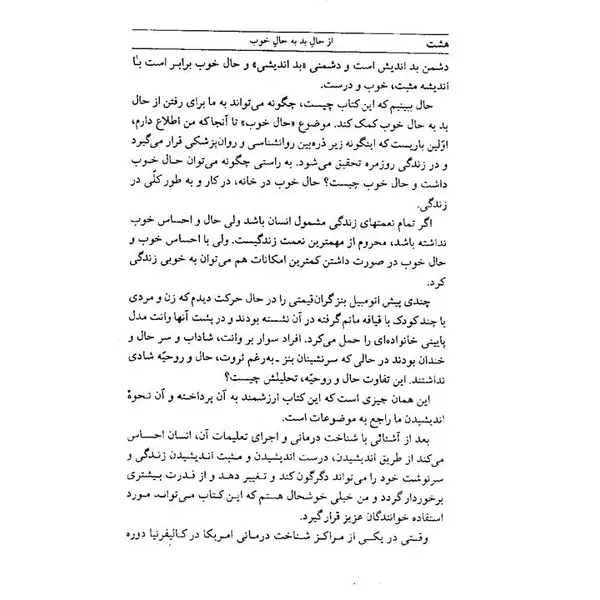 هشت
از حالِ بد به حالِ خوب
دشمن بد اندیش است و دشمنی «بد اندیشی» و حال خوب برابر است با
اندیشه مثبت، خوب و درست.
حال ببینیم که این کتاب چیست، چگونه می‌تواند به ما برای رفتن از حال
بد به حال خوب کمک کند. موضوع «حال خوب» تا آنجا که من اطلاع دارم،
اوّلین باریست که اینگونه زیر ذره‌بین روانشناسی و روان‌پزشکی قرار می‌گیرد
و در زندگی روزمره تحقیق می‌شود. به راستی چگونه می‌توان حال خوب
داشت و حال خوب چیست؟ حال خوب در خانه، در کار و به طور کلّی در
زندگی.
اگر تمام نعمتهای زندگی مشمول انسان باشد ولی حال و احساس خوب
نداشته باشد، محروم از مهمترین نعمت زندگیست. ولی با احساس خوب و
حال خوب در صورت داشتن کمترین امکانات هم می‌توان به خوبی زندگی
کرد.
چندی پیش اتومبیل بنز گران‌قیمتی را در حال حرکت دیدم که زن و مردی
با چند کودک با قیافه ماتم گرفته در آن نشسته بودند و در پشت آنها وانت مدل
پایینی خانواده‌ای را حمل می‌کرد. افراد سوار بر وانت، شاداب و سر حال و
خندان بودند در حالی که سرنشینان بنز ـ به‌رغم ثروت، حال و روحیّه شادی
نداشتند. این تفاوت حال و روحیّه، تحلیلش چیست؟
این همان چیزی است که این کتاب ارزشمند به آن پرداخته و آن نحوهٔ
اندیشیدن ما راجع به موضوعات است.
بعد از آشنائی با شناخت درمانی و اجرای تعلیمات آن، انسان احساس
می‌کند از طریق اندیشیدن، درست اندیشیدن و مثبت اندیشیدن زندگی و
سرنوشت خود را می‌تواند دگرگون کند و تغییر دهد و از قدرت بیشتری
برخوردار گردد و من خیلی خوشحال هستم که این کتاب می‌تواند مورد
استفاده خوانندگان عزیز قرار گیرد.
وقتی در یکی از مراکز شناخت درمانی امریکا در کالیفرنیا دوره